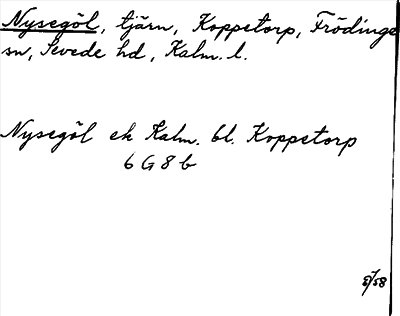 Nysegöl, tjärn, Koppetorp, Frödinge
sn, Sevede hd, Kalm. l.
Nysegöl ek Kalm. bl. Koppetorp
6 G 8 b
8/58